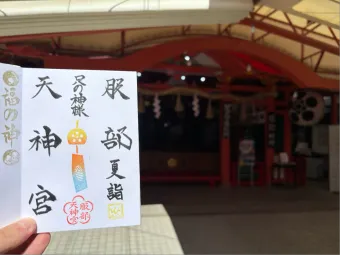 服部
夏詣
足の神様
天神宮
服部
天神宮
福の神